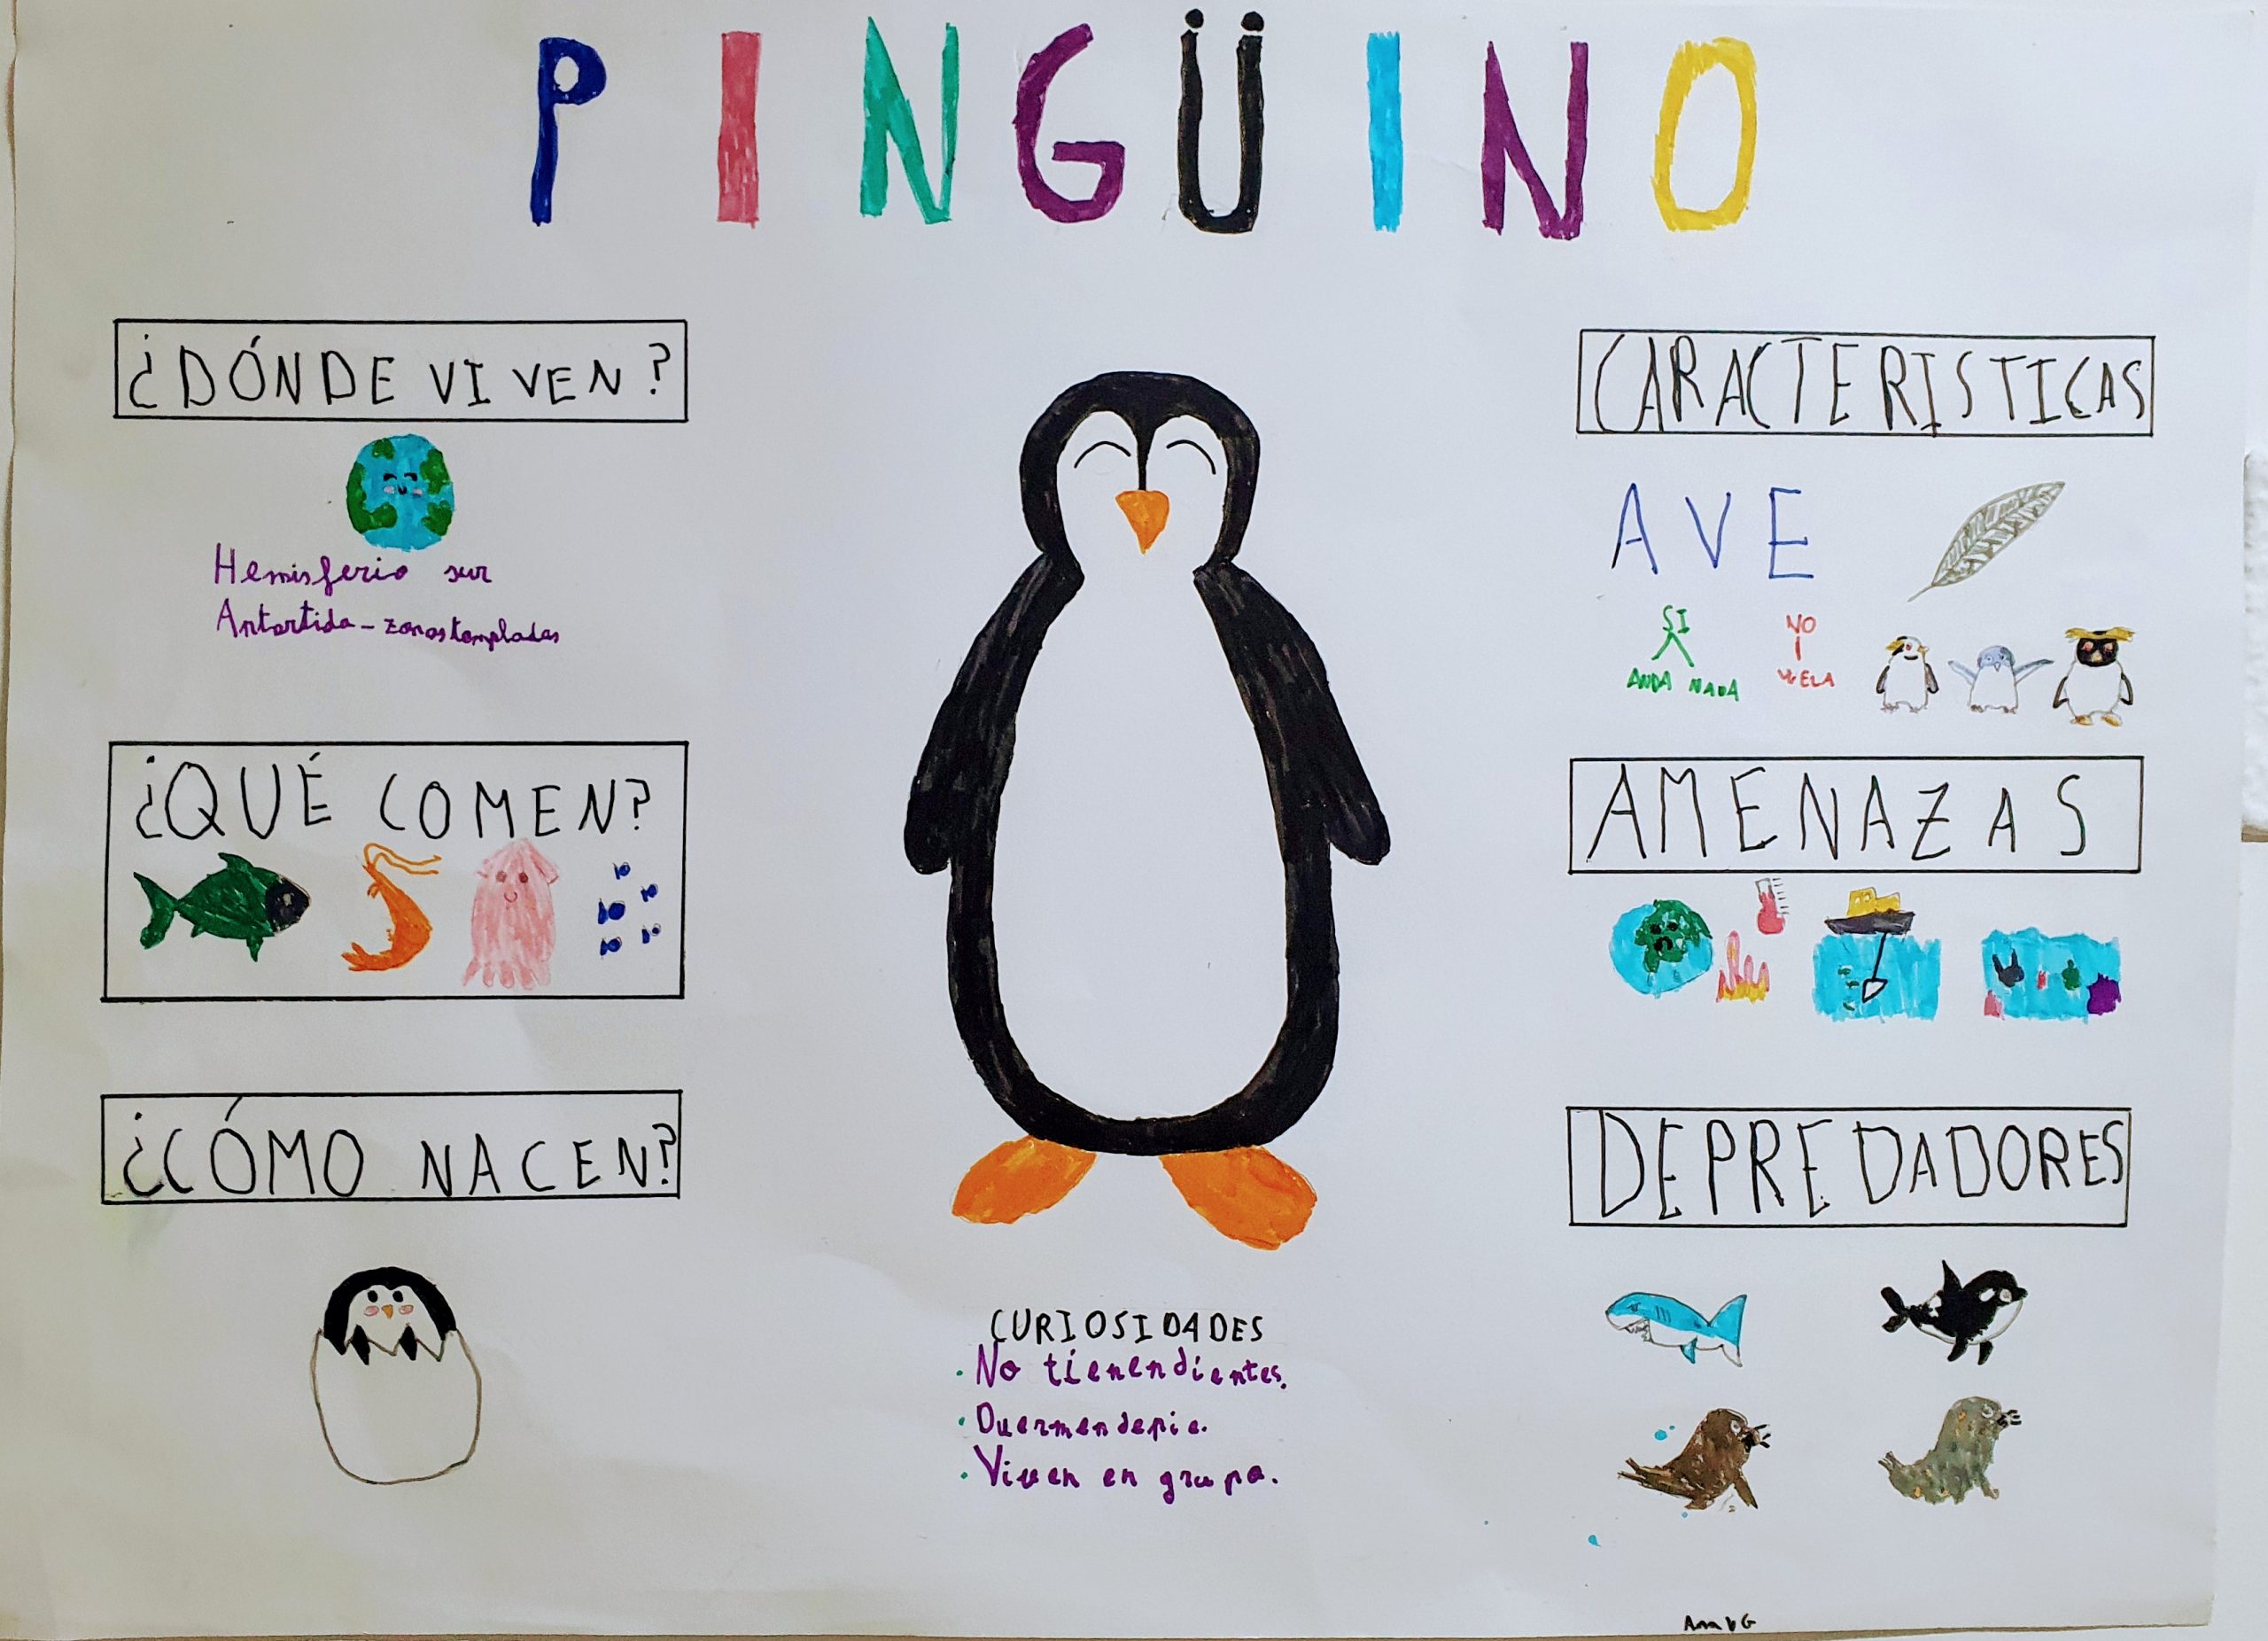 PINGÜINO
¿DÓNDE VIVEN?
Hemisferio sur
Antartida - zonas templadas
¿QUÉ COMEN?
¿CÓMO NACEN?
CURIOSIDADES
· No tienen dientes.
· Duermen de pie.
· Viven en grupo.
CARACTERISTICAS
AVE
SI NO
ANDA NADA VUELA
AMENAZAS
DEPREDADORES